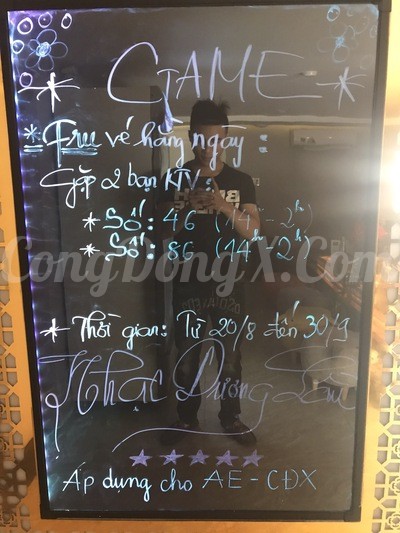 GAME
* Free vé hằng ngày :
Gặp 2 bạn KTV :
* Số: 46 (14h - 2h)
* Số: 86 (14h - 2h)
CongDongX.Com
* Thời gian: Từ 20/8 đến 30/9
Khac Dương Tâm
Áp dụng cho AE - CĐX